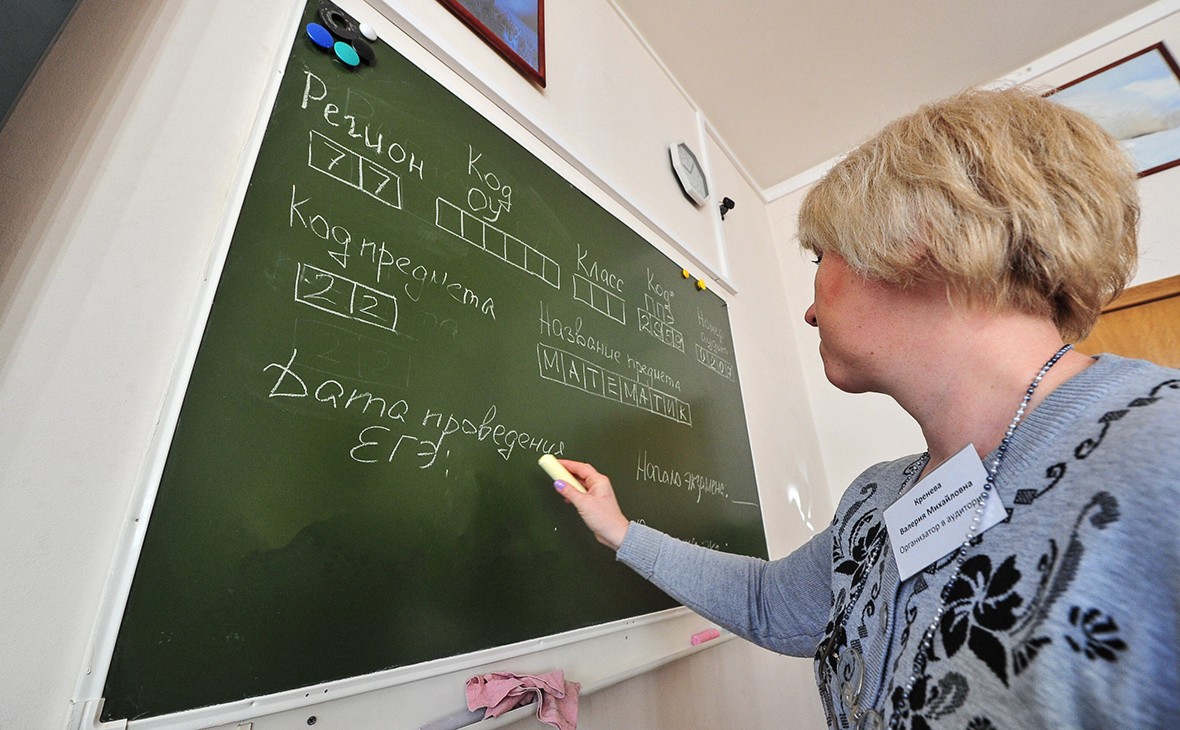 Регион
77
Код
ОУ
Код предмета
22
Класс
Код
Номер
0207
Название предмета
МАТЕМАТИК
Дата проведения
ЕГЭ:
Начало экзамена:
Кренева
Валерия Михайловна
Организатор в аудитории